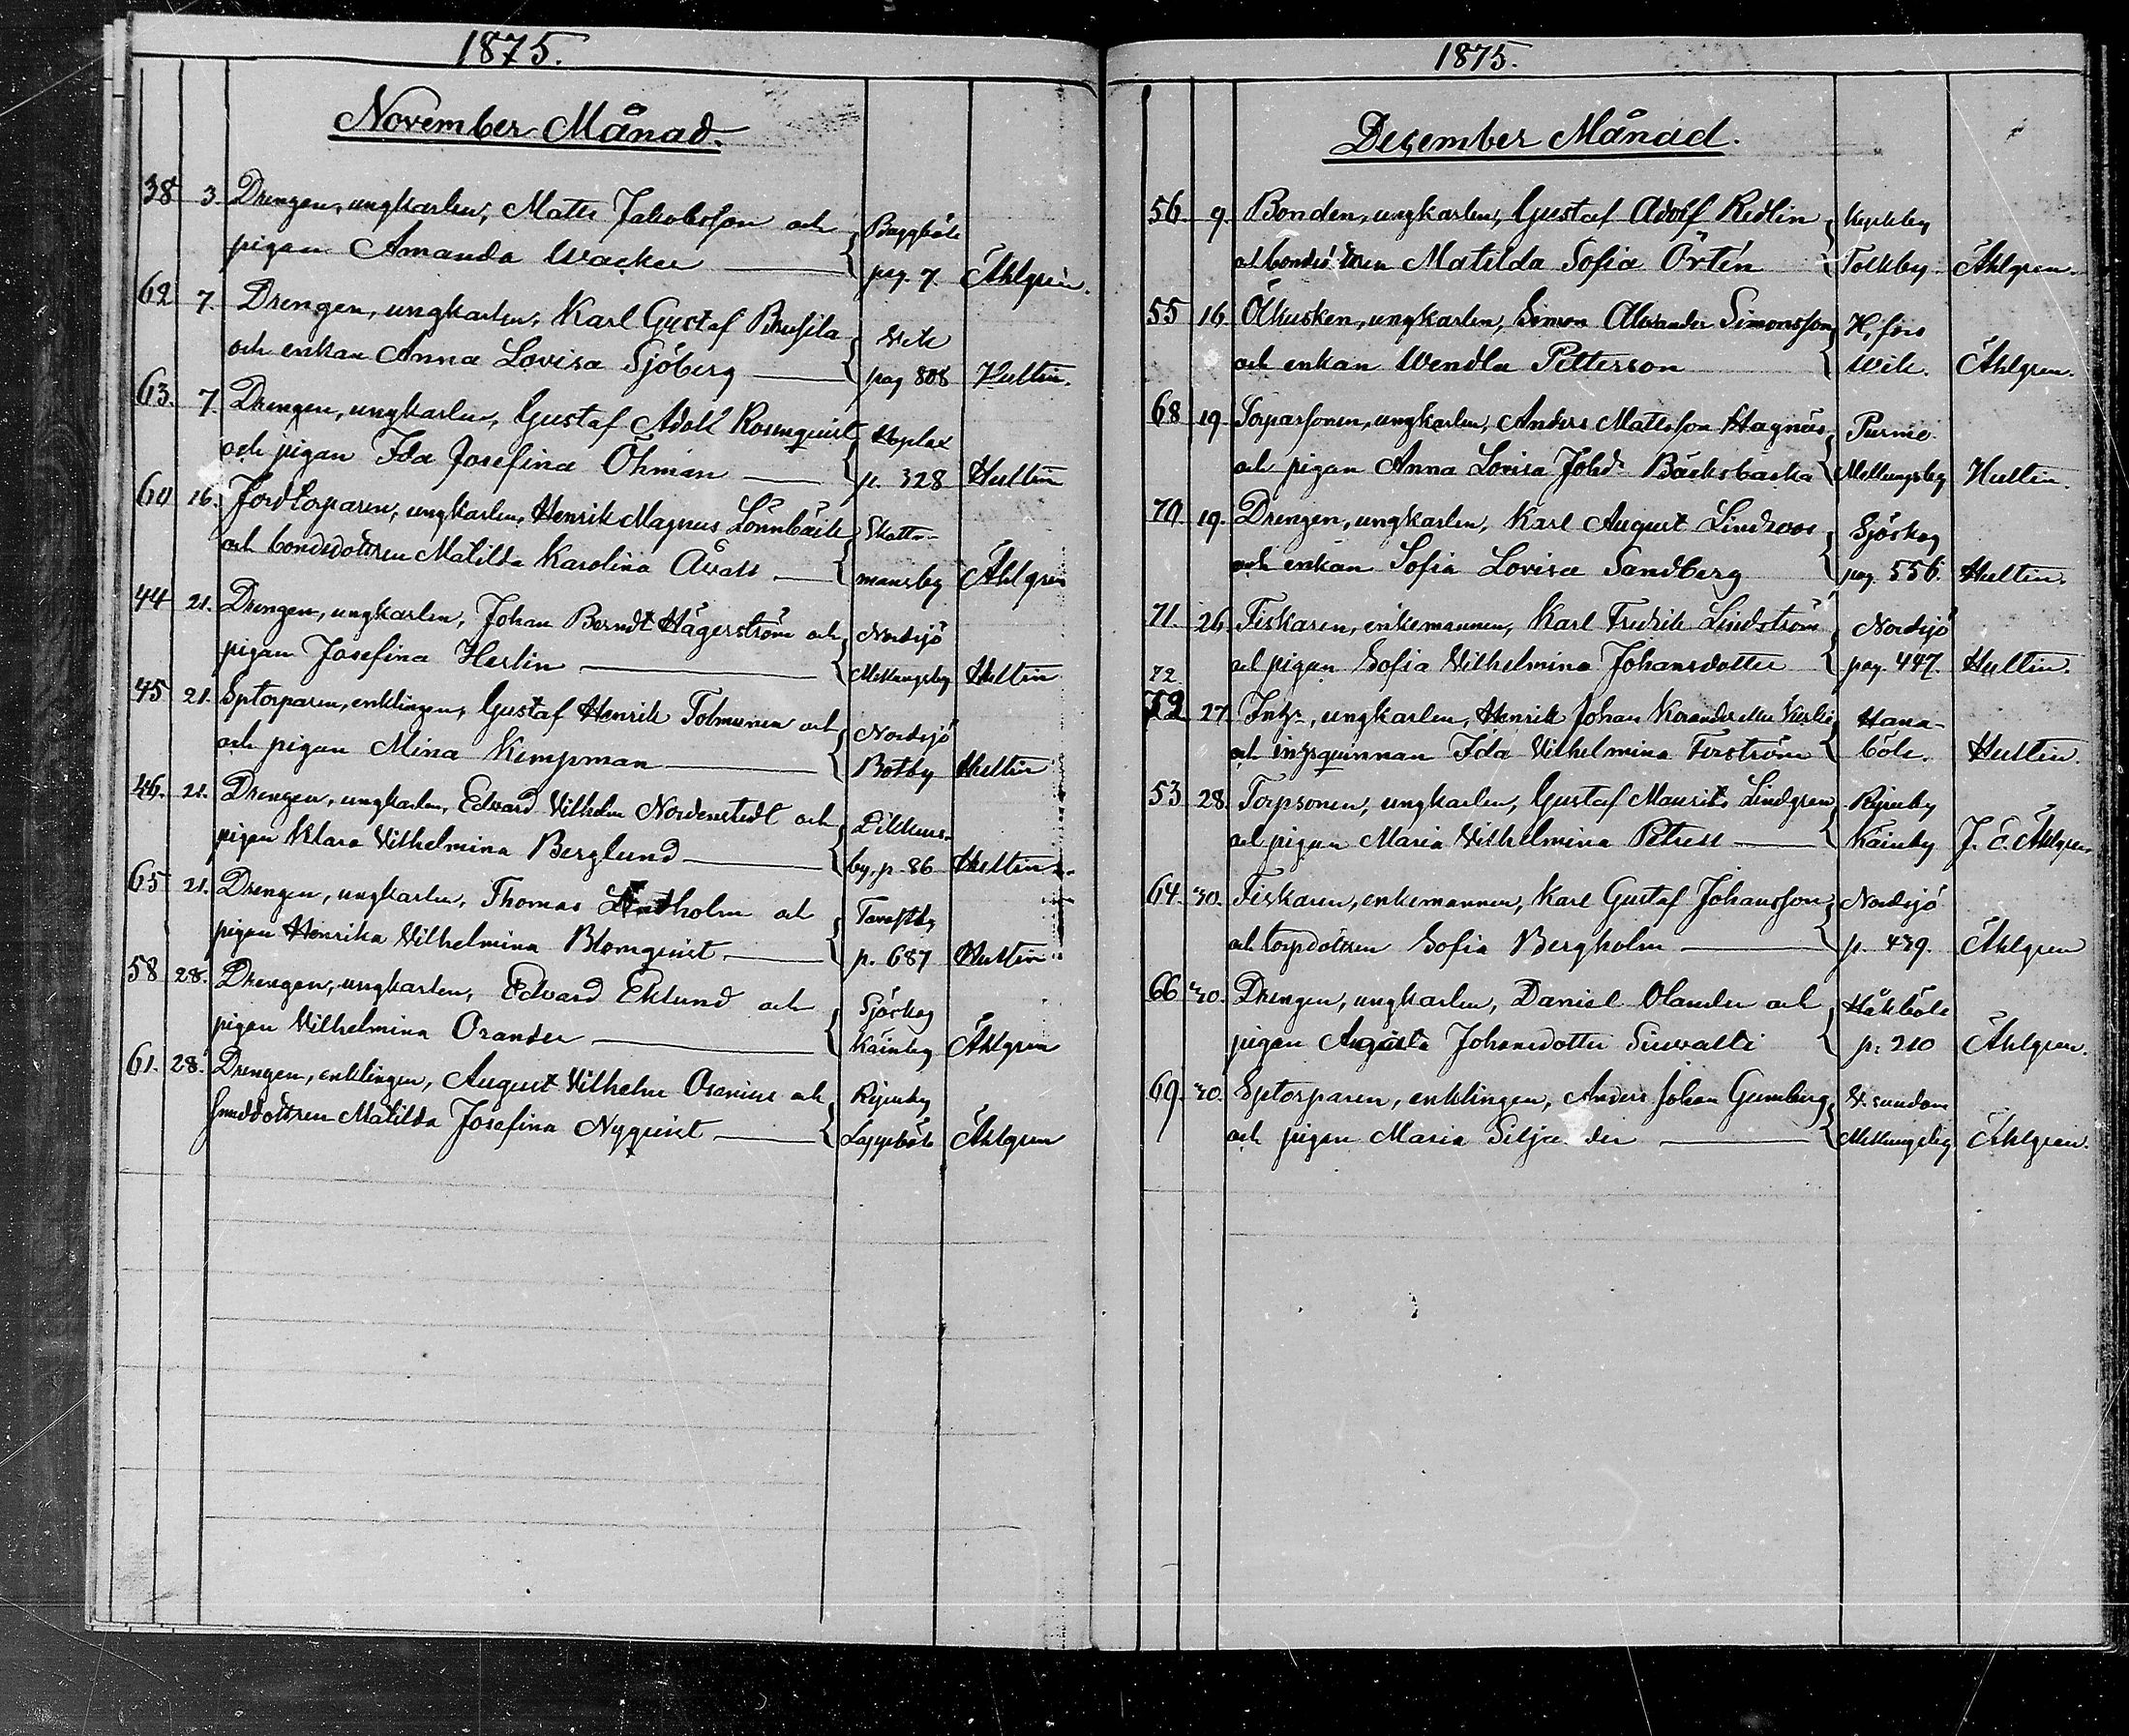 1875.
November Månad.
38 3. Drengen, ungkarlen, Matts Jakobsson och Baggböle
pigan Amanda Wacker pag. 7 Åhlgren.
62 7. Drengen, ungkarlen, Karl Gustaf Brusila Wik
och enkan Anna Lovisa Sjöberg pag 808 Hultin.
63. 7. Drengen, ungkarlen, Gustaf Adolf Rosenquist Hoplax
och pigan Ida Josefina Öhman p. 328 Hultin
60 16. Jordtorparen, ungkarlen, Henrik Magnus Lönnbäck Skatto-
och bondedottren Matilda Karolina Avall mansby Åhlgren
44 21. Drengen, ungkarlen, Johan Berndt Hägerström och Nordsjö
pigan Josefina Herlin Mellungsby Hultin
45 21. Sptorparen, enklingen, Gustaf Henrik Tolmunen och Nordsjö
och pigan Mina Kempman Botby Hultin
46. 21. Drengen, ungkarlen, Edvard Vilhelm Nordenstedt och Dikkurs-
pigan Klara Vilhelmina Berglund by, p. 86 Hultin
65 21. Drengen, ungkarlen, Thomas Lindholm och Tavastby
pigan Henrika Vilhelmina Blomquist p. 687 Hultin
58 28. Drengen, ungkarlen, Edvard Eklund och Sjöskog
pigan Vilhelmina Orander Käinby Åhlgren
61. 28. Drengen, enklingen, August Vilhelm Osenius och Rijenby
smeddottren Matilda Josefina Nyquist Lappböle Åhlgren
1875.
December Månad.
56. 9. Bonden, ungkarlen, Gustaf Adolf Redlin Kyrkby
och bondedottren Matilda Sofia Örtén Tolkby. Åhlgren.
55 16. Åkusken, ungkarlen, Simon Alexander Simonsson H,fors
och enkan Wendla Petterson Wik. Åhlgren.
68 19. Torparsonen, ungkarlen, Anders Mattsson Hagnäs, Purmo
och pigan Anna Lovisa Johdr Bäcksbacka Mellungsby Hultin.
70 19. Drengen, ungkarlen, Karl August Lindroos Sjöskog
och enkan Sofia Lovisa Sandberg pag. 556. Hultin.
71. 26. Fiskaren, enkemannen, Karl Fredrik Lindström Nordsjö
och pigan Sofia Vilhelmina Johansdotter pag. 447. Hultin.
72
72 27. Inhs, ungkarlen, Henrik Johan Korander eller Hana-
och inhsquinnan Ida Vilhelmina Forström böle. Hultin.
53 28. Torpsonen, ungkarlen, Gustaf Maurits Lindgren Rijenby
och pigan Maria Vilhelmina Petrell Käinby J. E. Åhlgren
64. 30. Fiskaren, enkemannen, Karl Gustaf Johansson, Nordsjö
och torpdottren Sofia Bergholm p. 439. Åhlgren
66 30. Drengen, ungkarlen, Daniel Olander och Håkböle
pigan Augusta Johansdotter Siuvatti p. 210 Åhlgren.
69. 30. Sptorparen, enklingen, Anders Johan Gumberg, V. sundom
och pigan Maria Selja der Mellungsby Åhlgren.